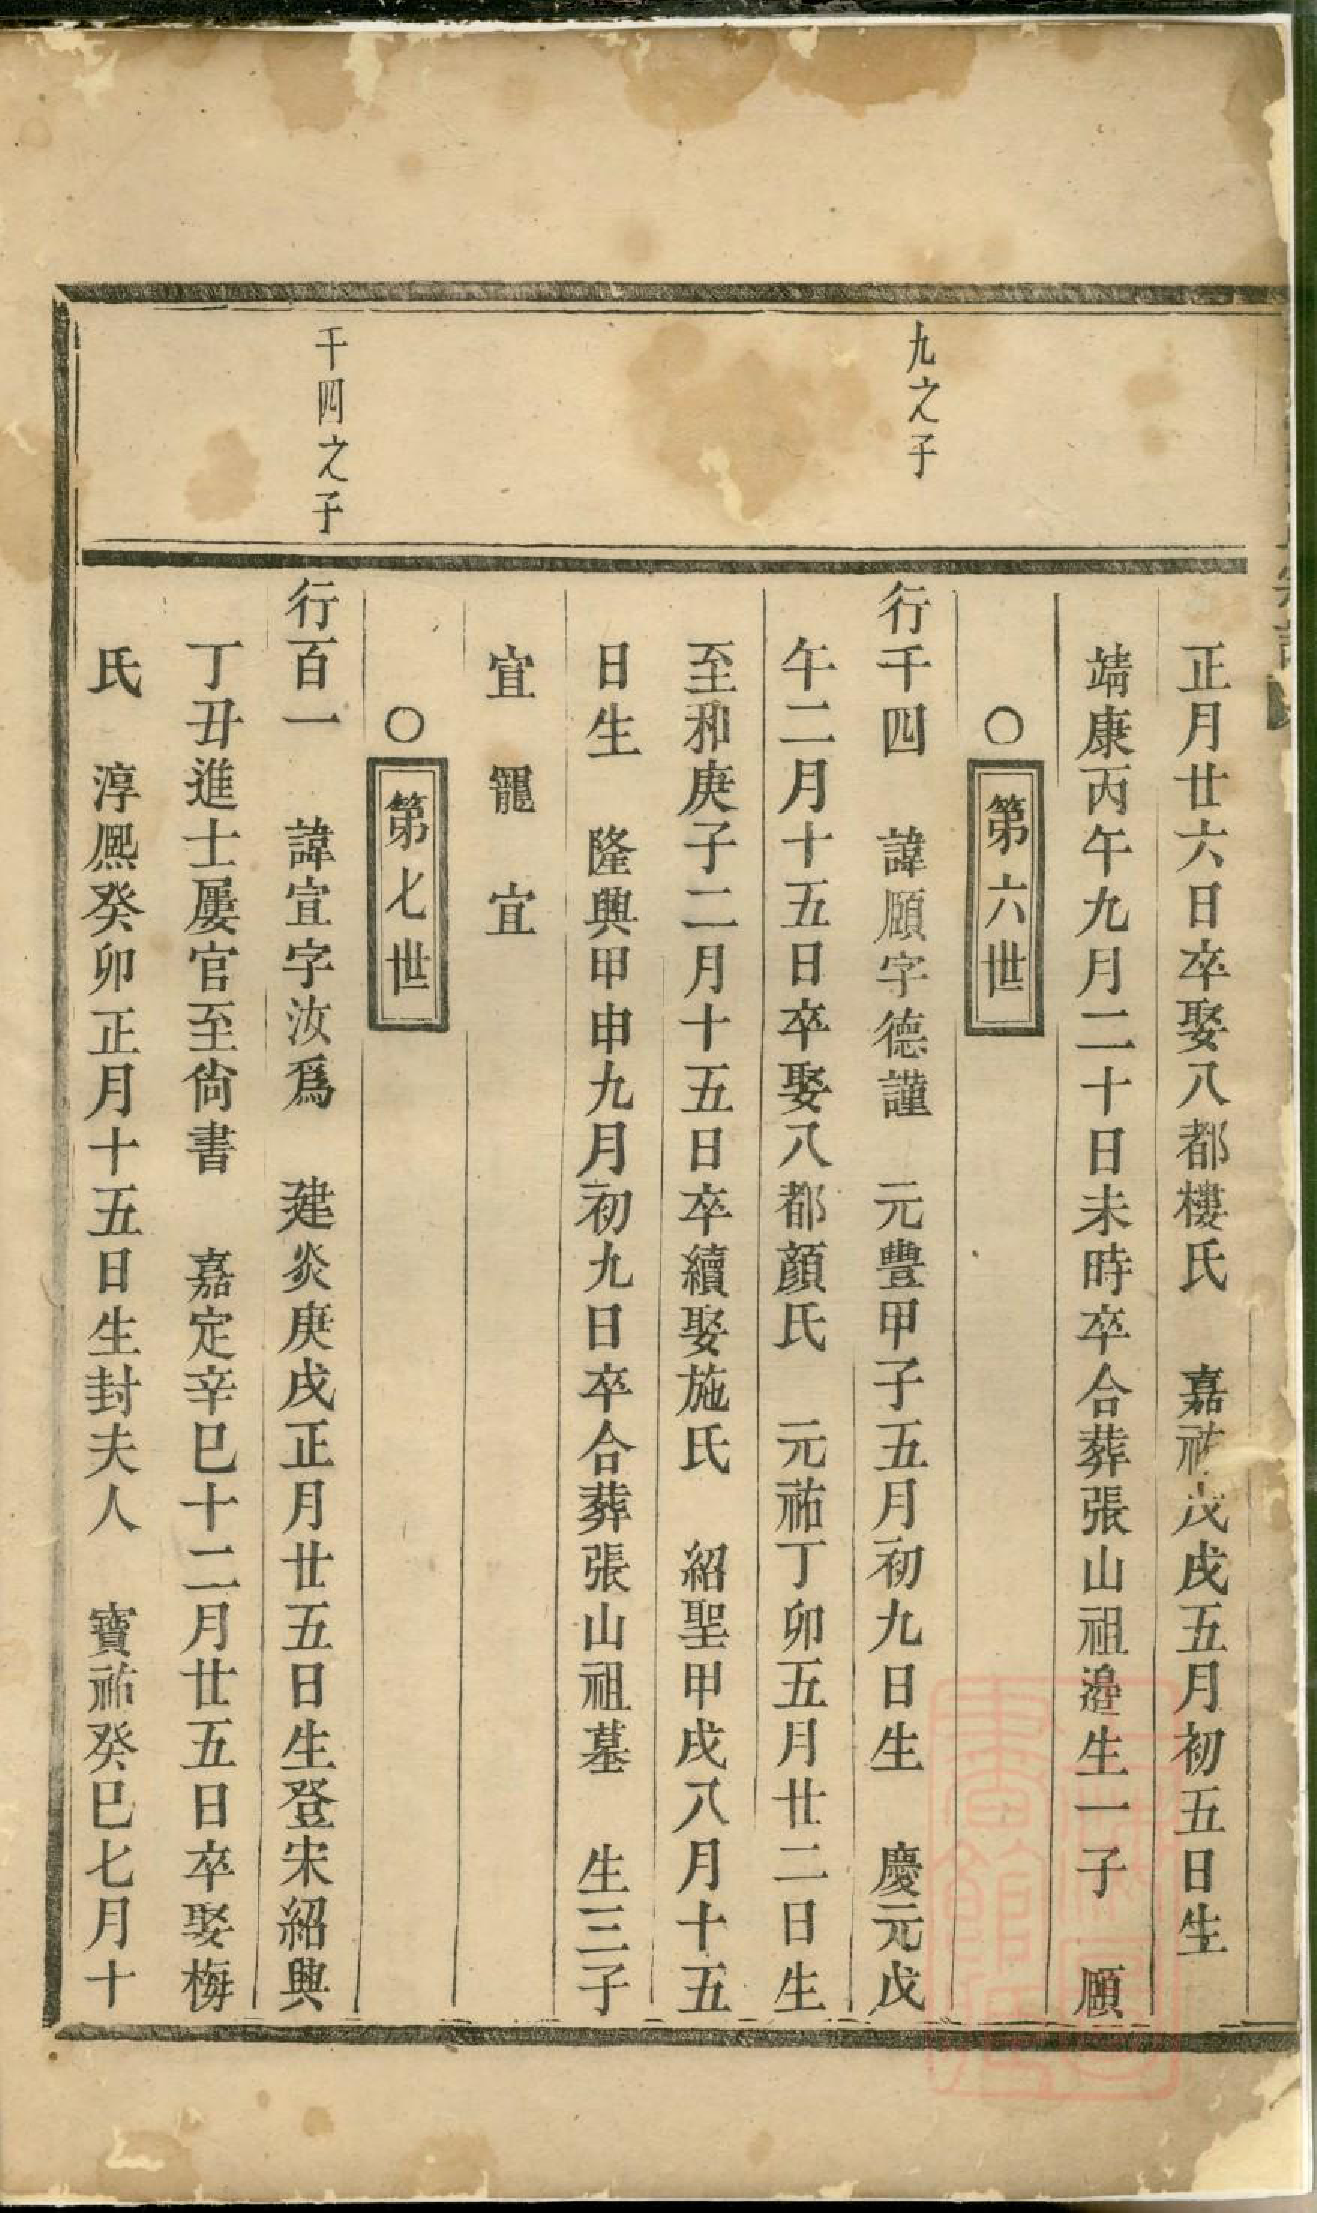 正月廿六日卒娶八都樓氏　嘉祐戊戌五月初五日生
靖康丙午九月二十日未時卒合葬張山祖邉生一子　願
〇第六世
九之子
行千四　諱願字德謹　元豐甲子五月初九日生　慶元戊
午二月十五日卒娶八都顏氏　元祐丁卯五月廿二日生
至和庚子二月十五日卒續娶施氏　紹聖甲戌八月十五
日生　隆興甲申九月初九日卒合葬張山祖墓　生三子
宜　寵　宜
〇第七世
千四之子
行百一　諱宜字汝爲　建炎庚戌正月廿五日生登宋紹興
丁丑進士屢官至尙書　嘉定辛巳十二月廿五日卒娶梅
氏　淳熈癸卯正月十五日生封夫人　寶祐癸巳七月十